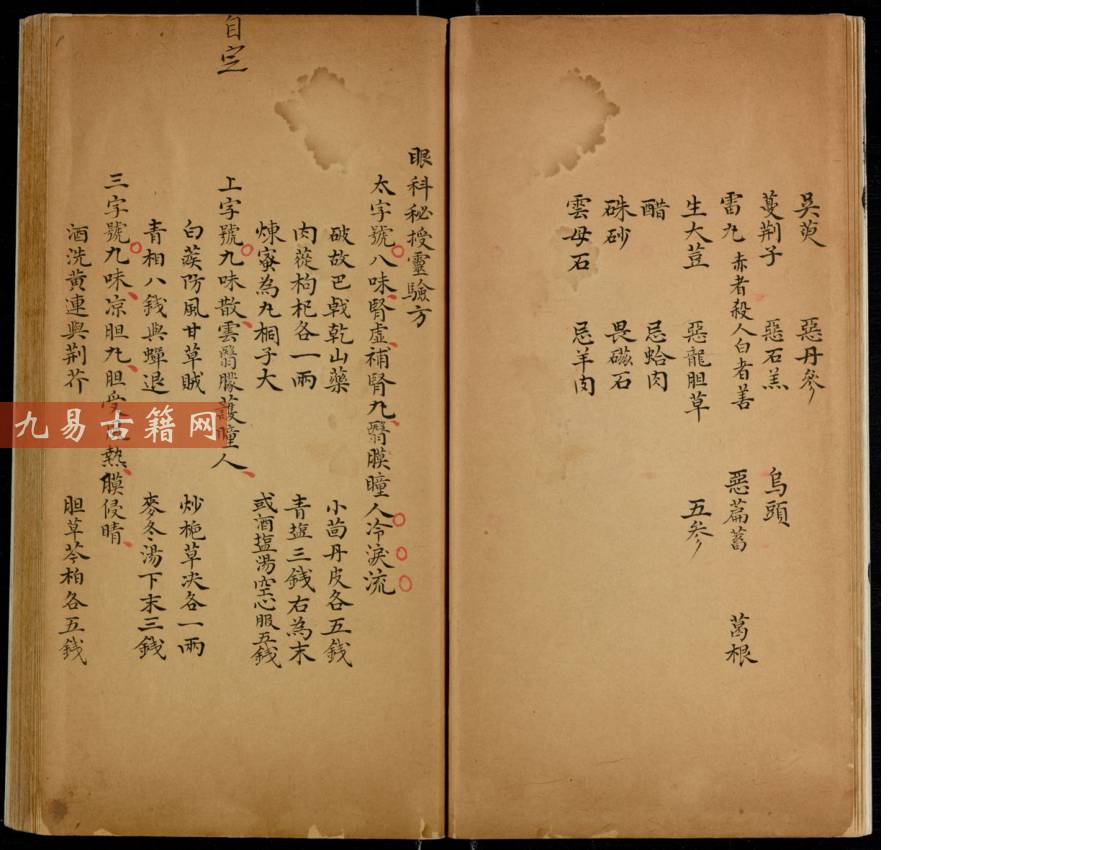 吳萸 惡丹參
蔓荆子 惡石羔 烏頭
雷九 赤者殺人白者善 惡萹蓄 葛根
生大荳 惡龍胆草 五參
醋 忌蛤肉
硃砂 畏磁石
雲母石 忌羊肉
眼科秘授靈驗方
太字號八味腎虛補腎九醫膜瞳人冷淚流
破故巴戟乾山藥 小茴丹皮各五錢
肉蓯枸杞各一兩 青塩三錢右為末
煉蜜為九桐子大 或酒塩湯空心服五錢
上字號九味散雲翳朦護瞳人
自定
白蒺防風甘草賊 炒梔草决各一兩
青相八錢與蟬退 麥冬湯下末三錢
三字號九味凉胆九胆受熱膜侵睛
酒洗黃連與荆芥 胆草芩柏各五錢
九易古籍网